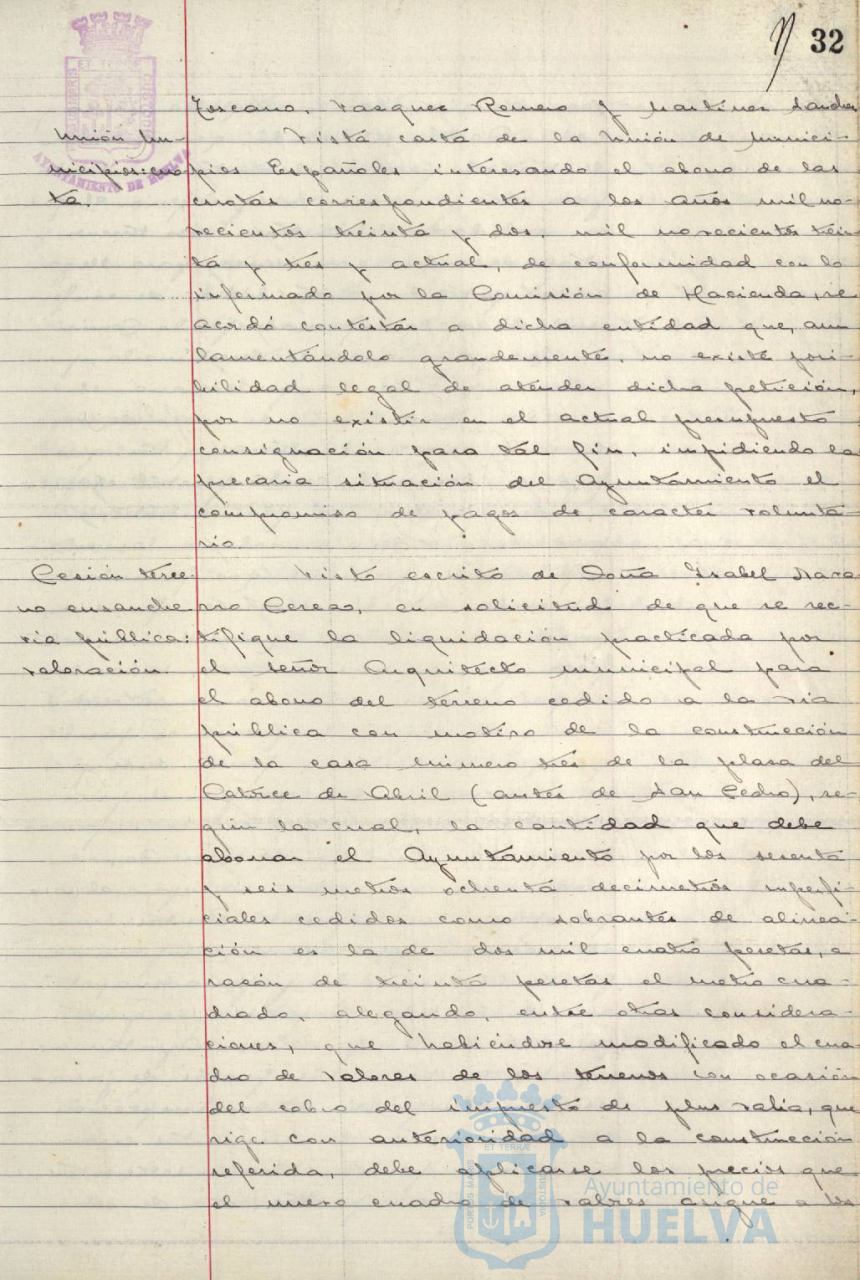 32
Toscano, Vazquez Romero y Martínez Sanchez
Unión Mu-
nicipios: cuo-
ta.
Vista carta de la Unión de Munici-
pios Españoles interesando el abono de las
cuotas correspondientes a los años mil no-
vecientos treinta y dos, mil novecientos trein-
ta y tres y actual, de conformidad con lo
informado por la Comisión de Hacienda, se
acordó contestar a dicha entidad que, aun
lamentándolo grandemente, no existe posi-
bilidad legal de atender dicha petición,
por no existir en el actual presupuesto
consignación para tal fin, impidiendo la
precaria situación del Ayuntamiento el
compromiso de pagos de caracter volunta-
rio.
Cesión terre-
no ensanche
via pública:
valoración.
Visto escrito de Doña Isabel Nava-
rro Cerezo, en solicitud de que se rec-
tifique la liquidación practicada por
el señor Arquitecto municipal para
el abono del terreno cedido a la via
pública con motivo de la construcción
de la casa número tres de la plaza del
Catorce de Abril (antes de San Pedro), se-
gún la cual, la cantidad que debe
abonar el Ayuntamiento por los sesenta
y seis metros ochenta decimetros superfi-
ciales cedidos como sobrantes de alinea-
ción es la de dos mil cuatro pesetas, a
razón de treinta pesetas el metro cua-
drado, alegando, entre otras considera-
ciones, que habiéndose modificado el cua-
dro de valores de los terrenos con ocasión
del cobro del impuesto de plus valía, que
rige con anterioridad a la construcción
referida, debe aplicarse los precios que
el nuevo cuadro de valores asigne a los
AYUNTAMIENTO DE HUELVA
Ayuntamiento de
HUELVA